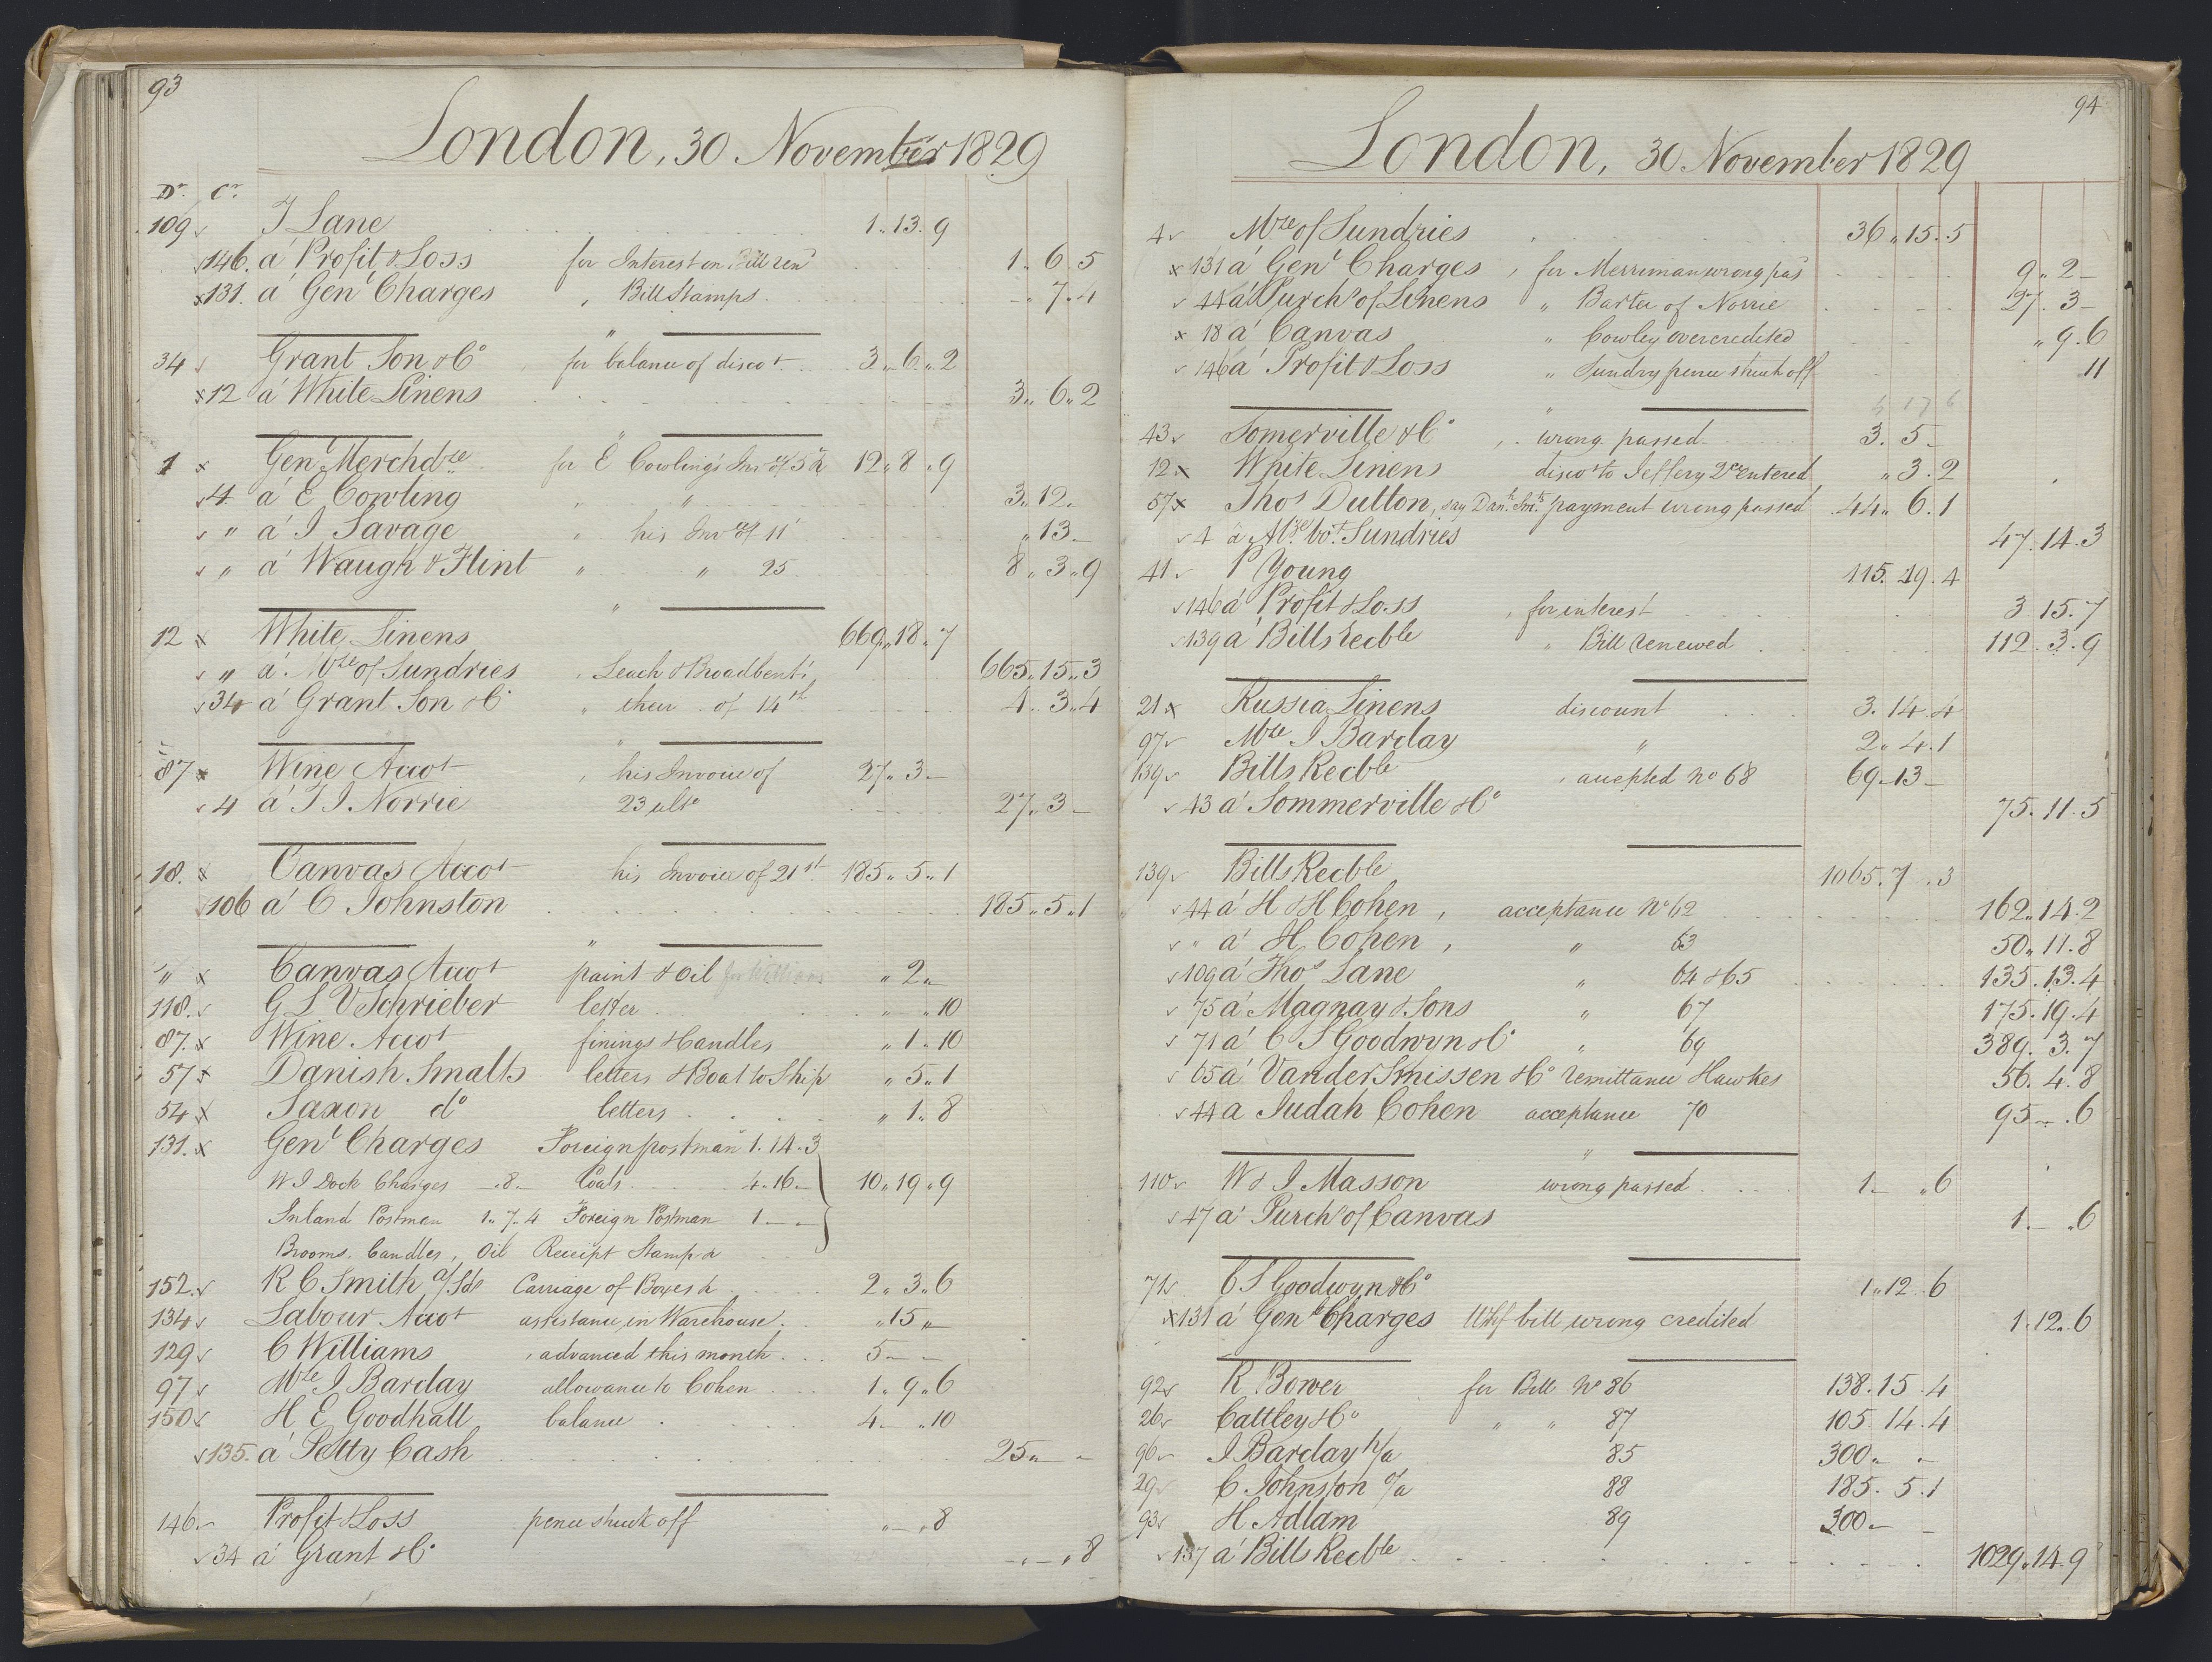 93
London, 30 November 1829
Dr. Cr.
109 J Lane 1.. 13. 9
146. a' Profit & Loss for Interest on Bill ren'd 1. 6. 5
131. a' Gen'l Charges , Bill Stamps. -. 7. 4
34 Grant Son & Co for balance of discot. 3.. 6.. 2
12 a' White Linens 3.. 6.. 2
"
1 x Gen'l Merchdze for E Cowling's Inv of 5th 12.. 8.. 9
4. a' E Cowling " " 3.. 12..
" a' J Savage " his Inv of 11' " 13 _
" a' Waugh & Flint " " 25 8.. 3.. 9
"
12 x White Linens 669.. 18.. 7
" a' Mdze of Sundries , Leach & Broadbent's 665.. 15.. 3
34 a' Grant Son & Co " their . of 14th 4.. 3.. 4
"
87 x Wine Accot , his Invoice of 27.. 3 _
4 a' J J Norrie 23 ulto 27.. 3 _
18. x Canvas Accot his Invoice of 21st 185.. 5.. 1
106 a' C Johnston 185.. 5.. 1
"
" x Canvas Accot paint & Oil for Williams " 2..
118. G L V Schrieber letter " _ .. 10
87. x Wine Accot finings & Candles " 1.. 10
57 x Danish Smalts letters & Boat to Ship " 5.. 1
54 x Saxon do letters " 1.. 8
131. x Gen'l Charges Foreign postman 1. 14. 3
W I Dock Charges _ .8.. Coals 4.. 16 _ 10.. 19.. 9
Inland Postman 1.. 7.. 4 Foreign Postman 1 _ _
Brooms, Candles, Oil Receipt Stamp &
152. R C Smith a/Sds Carriage of Boxes & 2.. 3.. 6
134 Labour Accot assistance in Warehouse. " 15 "
129 C Williams , advanced this month 5 _ _
97 Mdze J Barclay allowance to Cohen 1.. 9.. 6
150 H E Goodhall balance 4 _ .. 10
135. a' Petty Cash 25.. _ _
146. Profit & Loss . pence struck off .. _ .. 8
34 a' Grant & Co _ .. _ .. 8
94
London, 30 November 1829
4 Mdze of Sundries 36.. 15.. 5
x 131 a' Gen'l Charges , for Merriman wrong pas'd 9.. 2 _
44 a' Purch's of Linens " Barter of Norrie 27. 3 _
x 18 a' Canvas " Cowley overcredited " 9. 6
146 a' Profit & Loss " Sundry pence struck off 11
"
43 Somerville & Co , wrong passed 3. 5 _
12 x White Linens disco to Jeffery 2ce entered " 3. 2
57 x Thos Dutton, say Dan.h Sm.ts payment wrong passed 44.. 6. 1
4 a' Mdze bot. Sundries 47. 14. 3
41 P Young 115. 19. 4
146 a' Profit & Loss , for interest 3 15. 7
139 a' Bills Recble " Bill renewed 112. 3. 9
21 x Russia Linens discount 3. 14. 4
97 Mdze J Barclay " 2.. 4. 1
139 Bills Recble , accepted No 68 69.. 13 _
43 a' Sommerville & Co 75. 11. 5
139 Bills Recble 1065. 7. 3
44 a' H & H Cohen , acceptance No 62 162.. 14. 2
" a' H Cohen , " 63 50.. 11. 8
109 a' Thos Lane " 64 & 65 135. 13. 4
75 a' Magnay & Sons " 67 175. 19. 4
71 a' C S Goodwyn & Co " 69 389. 3. 7
65 a' VanderSmissen & Co remittance Hawkes 56. 4. 8
44 a Judah Cohen acceptance 70 95 _ . 6
"
110 W & J Masson wrong passed 1 _ .. 6
47 a' Purch's of Canvas 1. _ .. 6
71 C S Goodwyn & Co 1.. 12. 6
x 131 a' Gen'l Charges bill wrong credited 1. 12.. 6
92 R Bower for Bill No 86 138. 15. 4
26 Cattley & Co " " 87 105. 14. 4
96 J Barclay h/a 85 300.. _
29 C Johnston o/a 88 185. 5. 1
93 H Adlam 89 300 _ _
137 a' Bills Recble 1029.. 14. 9